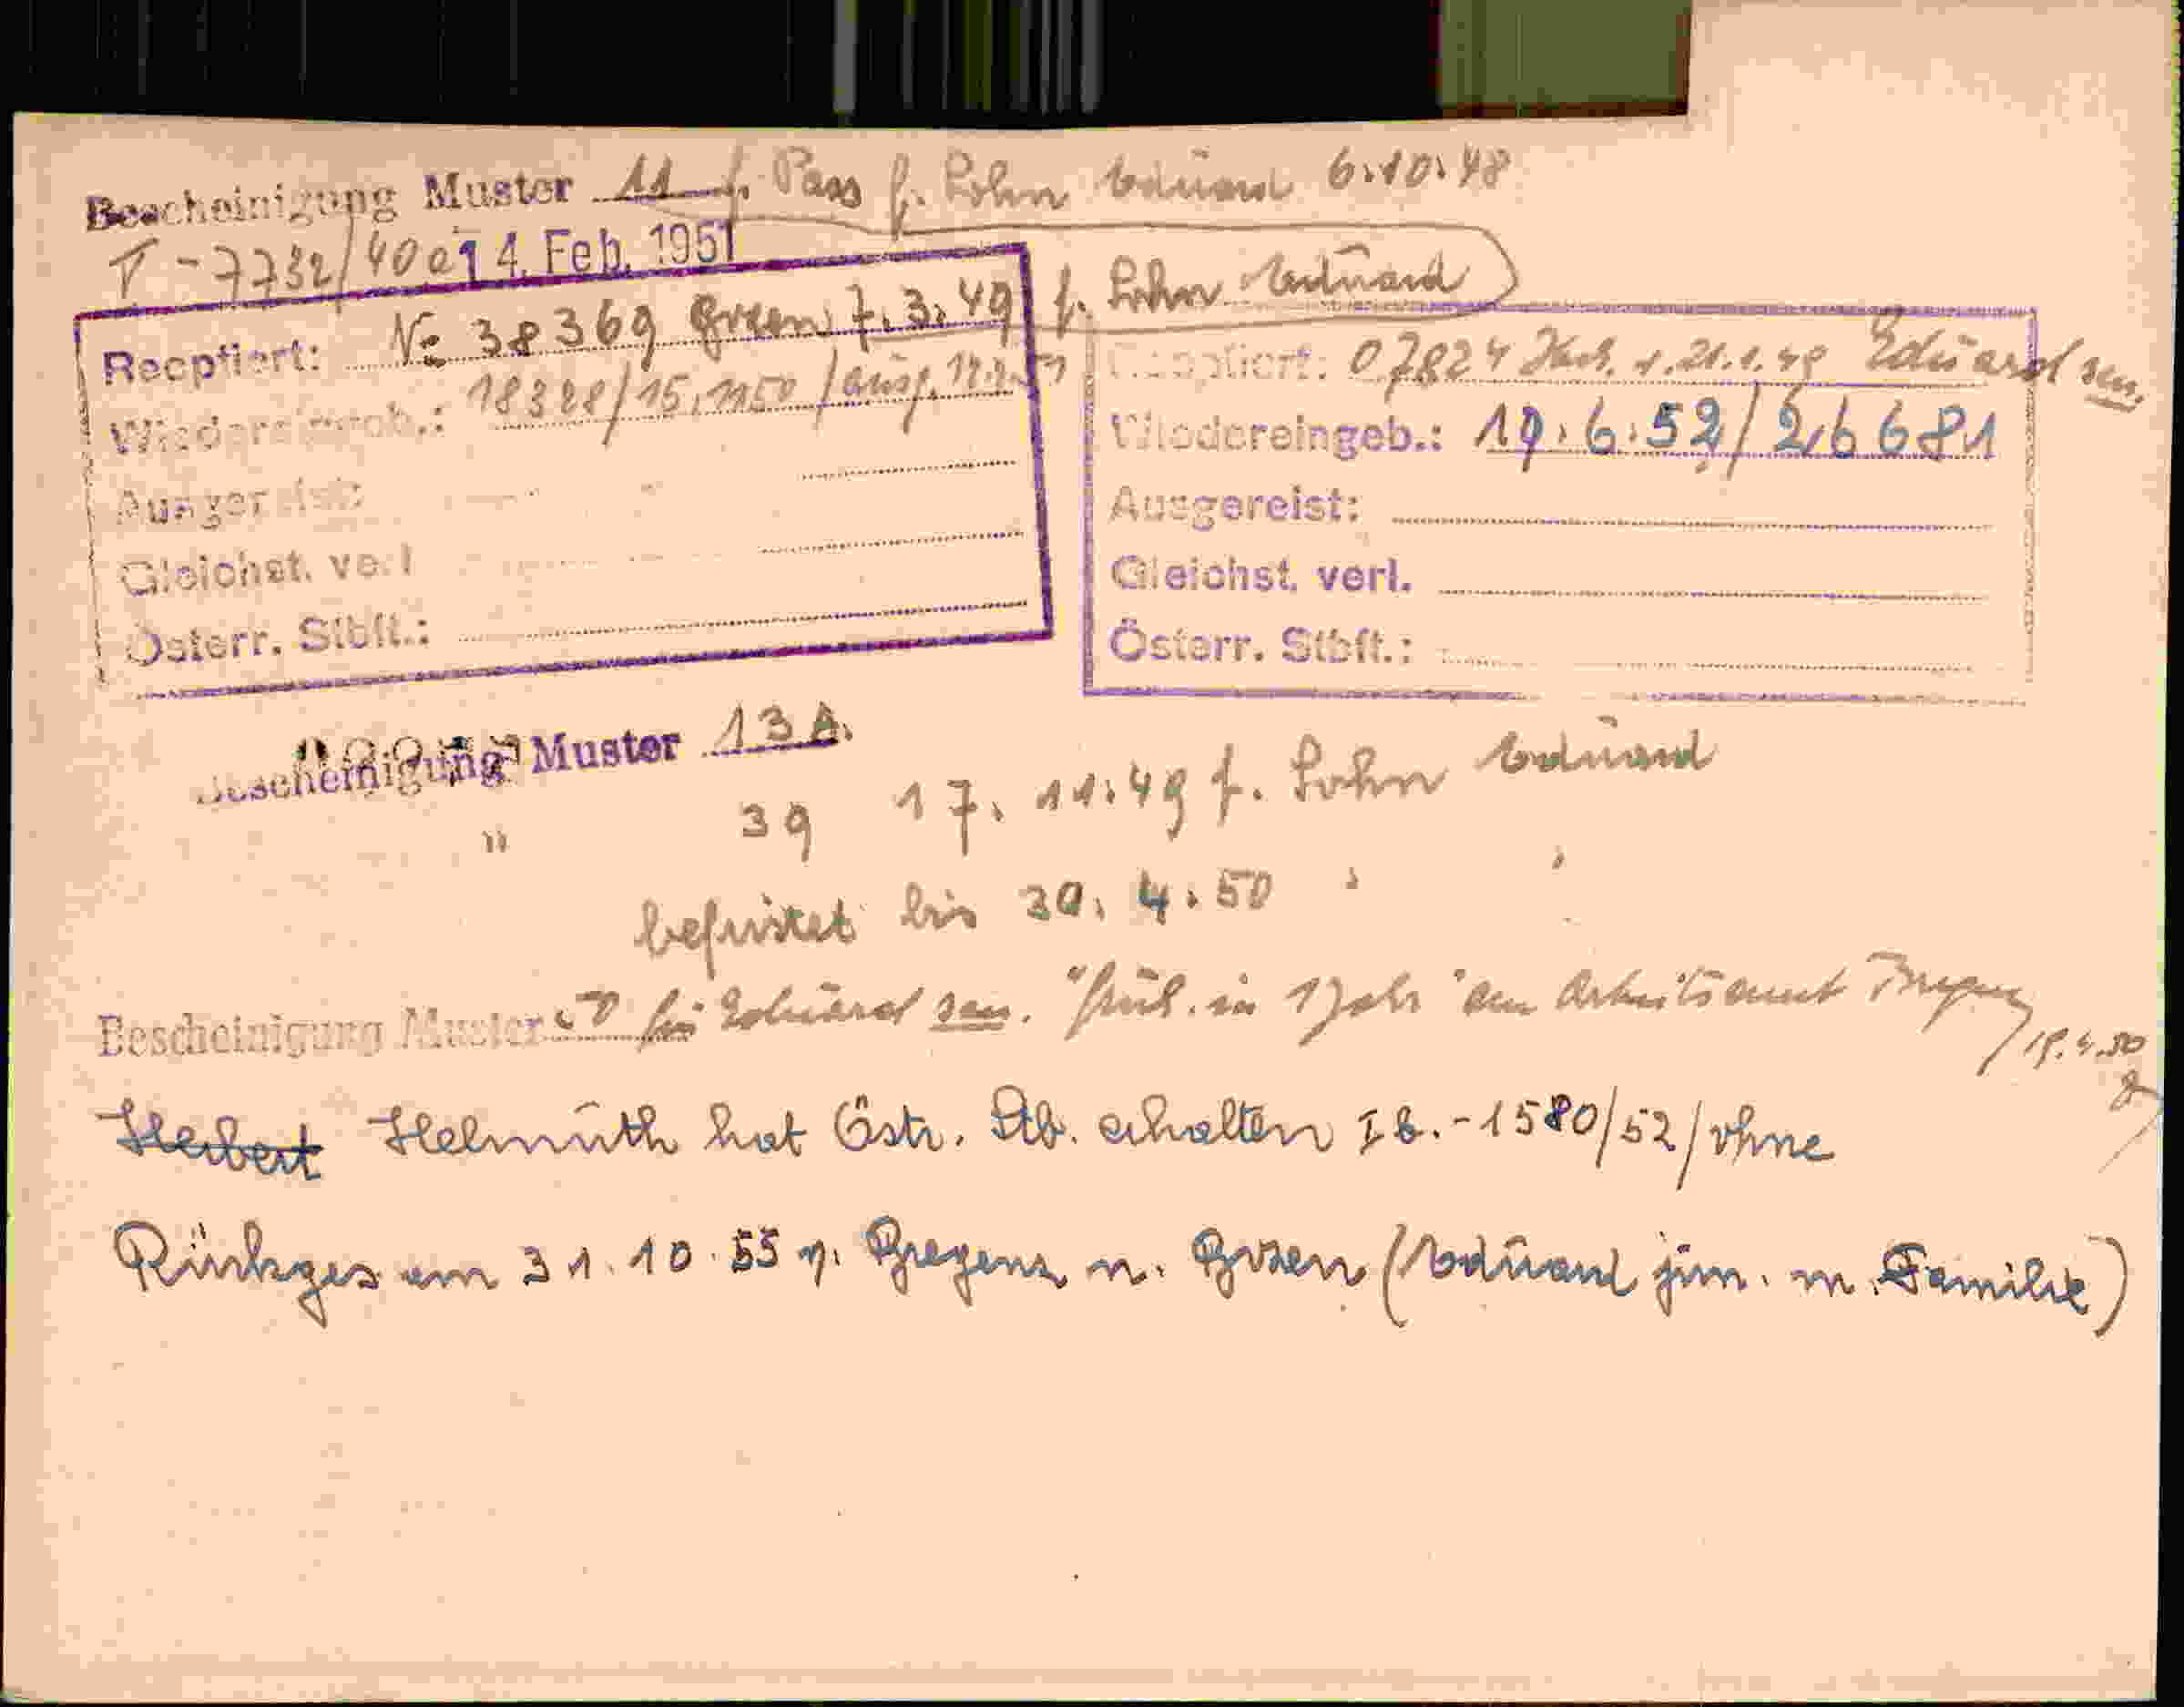 Bescheinigung Muster 11 f. Pass f. Sohn Eduard 6.10.48
T-7732/40e 14. Feb. 1951
f. Sohn Eduard
Reoptiert: № 38369 Bozen 7.3.49
Wiedereingeb.: 18328/15.1150/ausg.
Ausgereist:
Gleichst. verl
Österr. Stbft.:
Reoptiert: 07824 21.1.49 Eduard sen.
Wiedereingeb.: 19.6.52/26681
Ausgereist:
Gleichst. verl.
Österr. Stbft.:
Bescheinigung Muster 13A.
" 39 17.11.49 f. Sohn Eduard
befristet bis 30.4.50 " "
Bescheinigung Muster für Eduard sen. in 1 Jahr" am Arbeitsamt Bregenz
19.4.50
Herbert Helmuth hat Östr. Stb. erhalten Ib.-1580/52/ohne
Rückges am 31.10.55 v. Bregenz n. Bozen (Eduard jun. m. Familie)